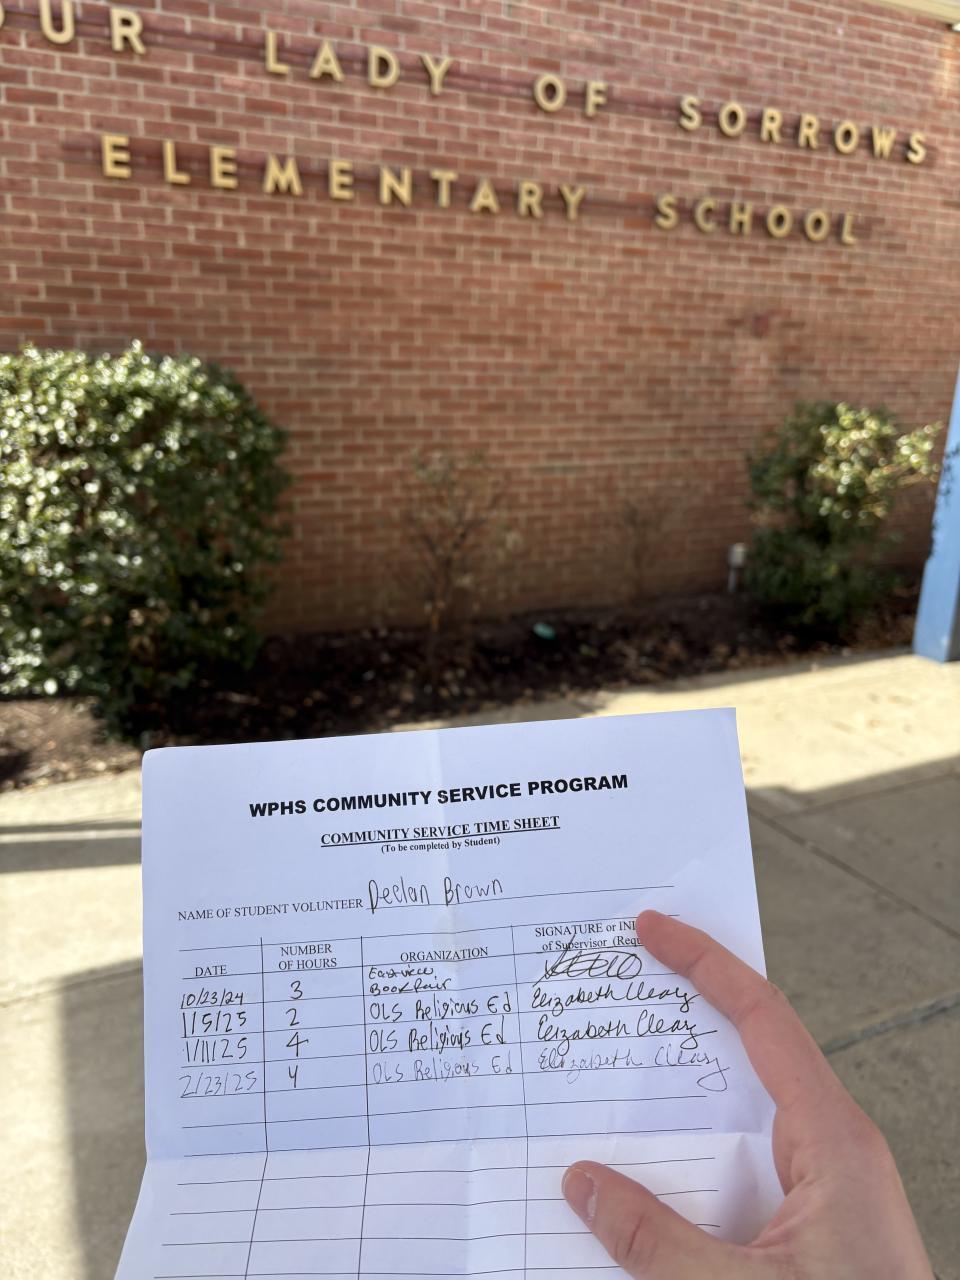 OUR LADY OF SORROWS
ELEMENTARY SCHOOL
WPHS COMMUNITY SERVICE PROGRAM
COMMUNITY SERVICE TIME SHEET
(To be completed by Student)
NAME OF STUDENT VOLUNTEER Declan Brown
DATE NUMBER OF HOURS ORGANIZATION SIGNATURE or INI
of Supervisor (Requ
10/23/24 3 Eastview Book Fair
1/5/25 2 OLS Religious Ed Elizabeth Cleary
1/11/25 4 OLS Religious Ed Elizabeth Cleary
2/23/25 4 OLS Religious Ed Elizabeth Cleary